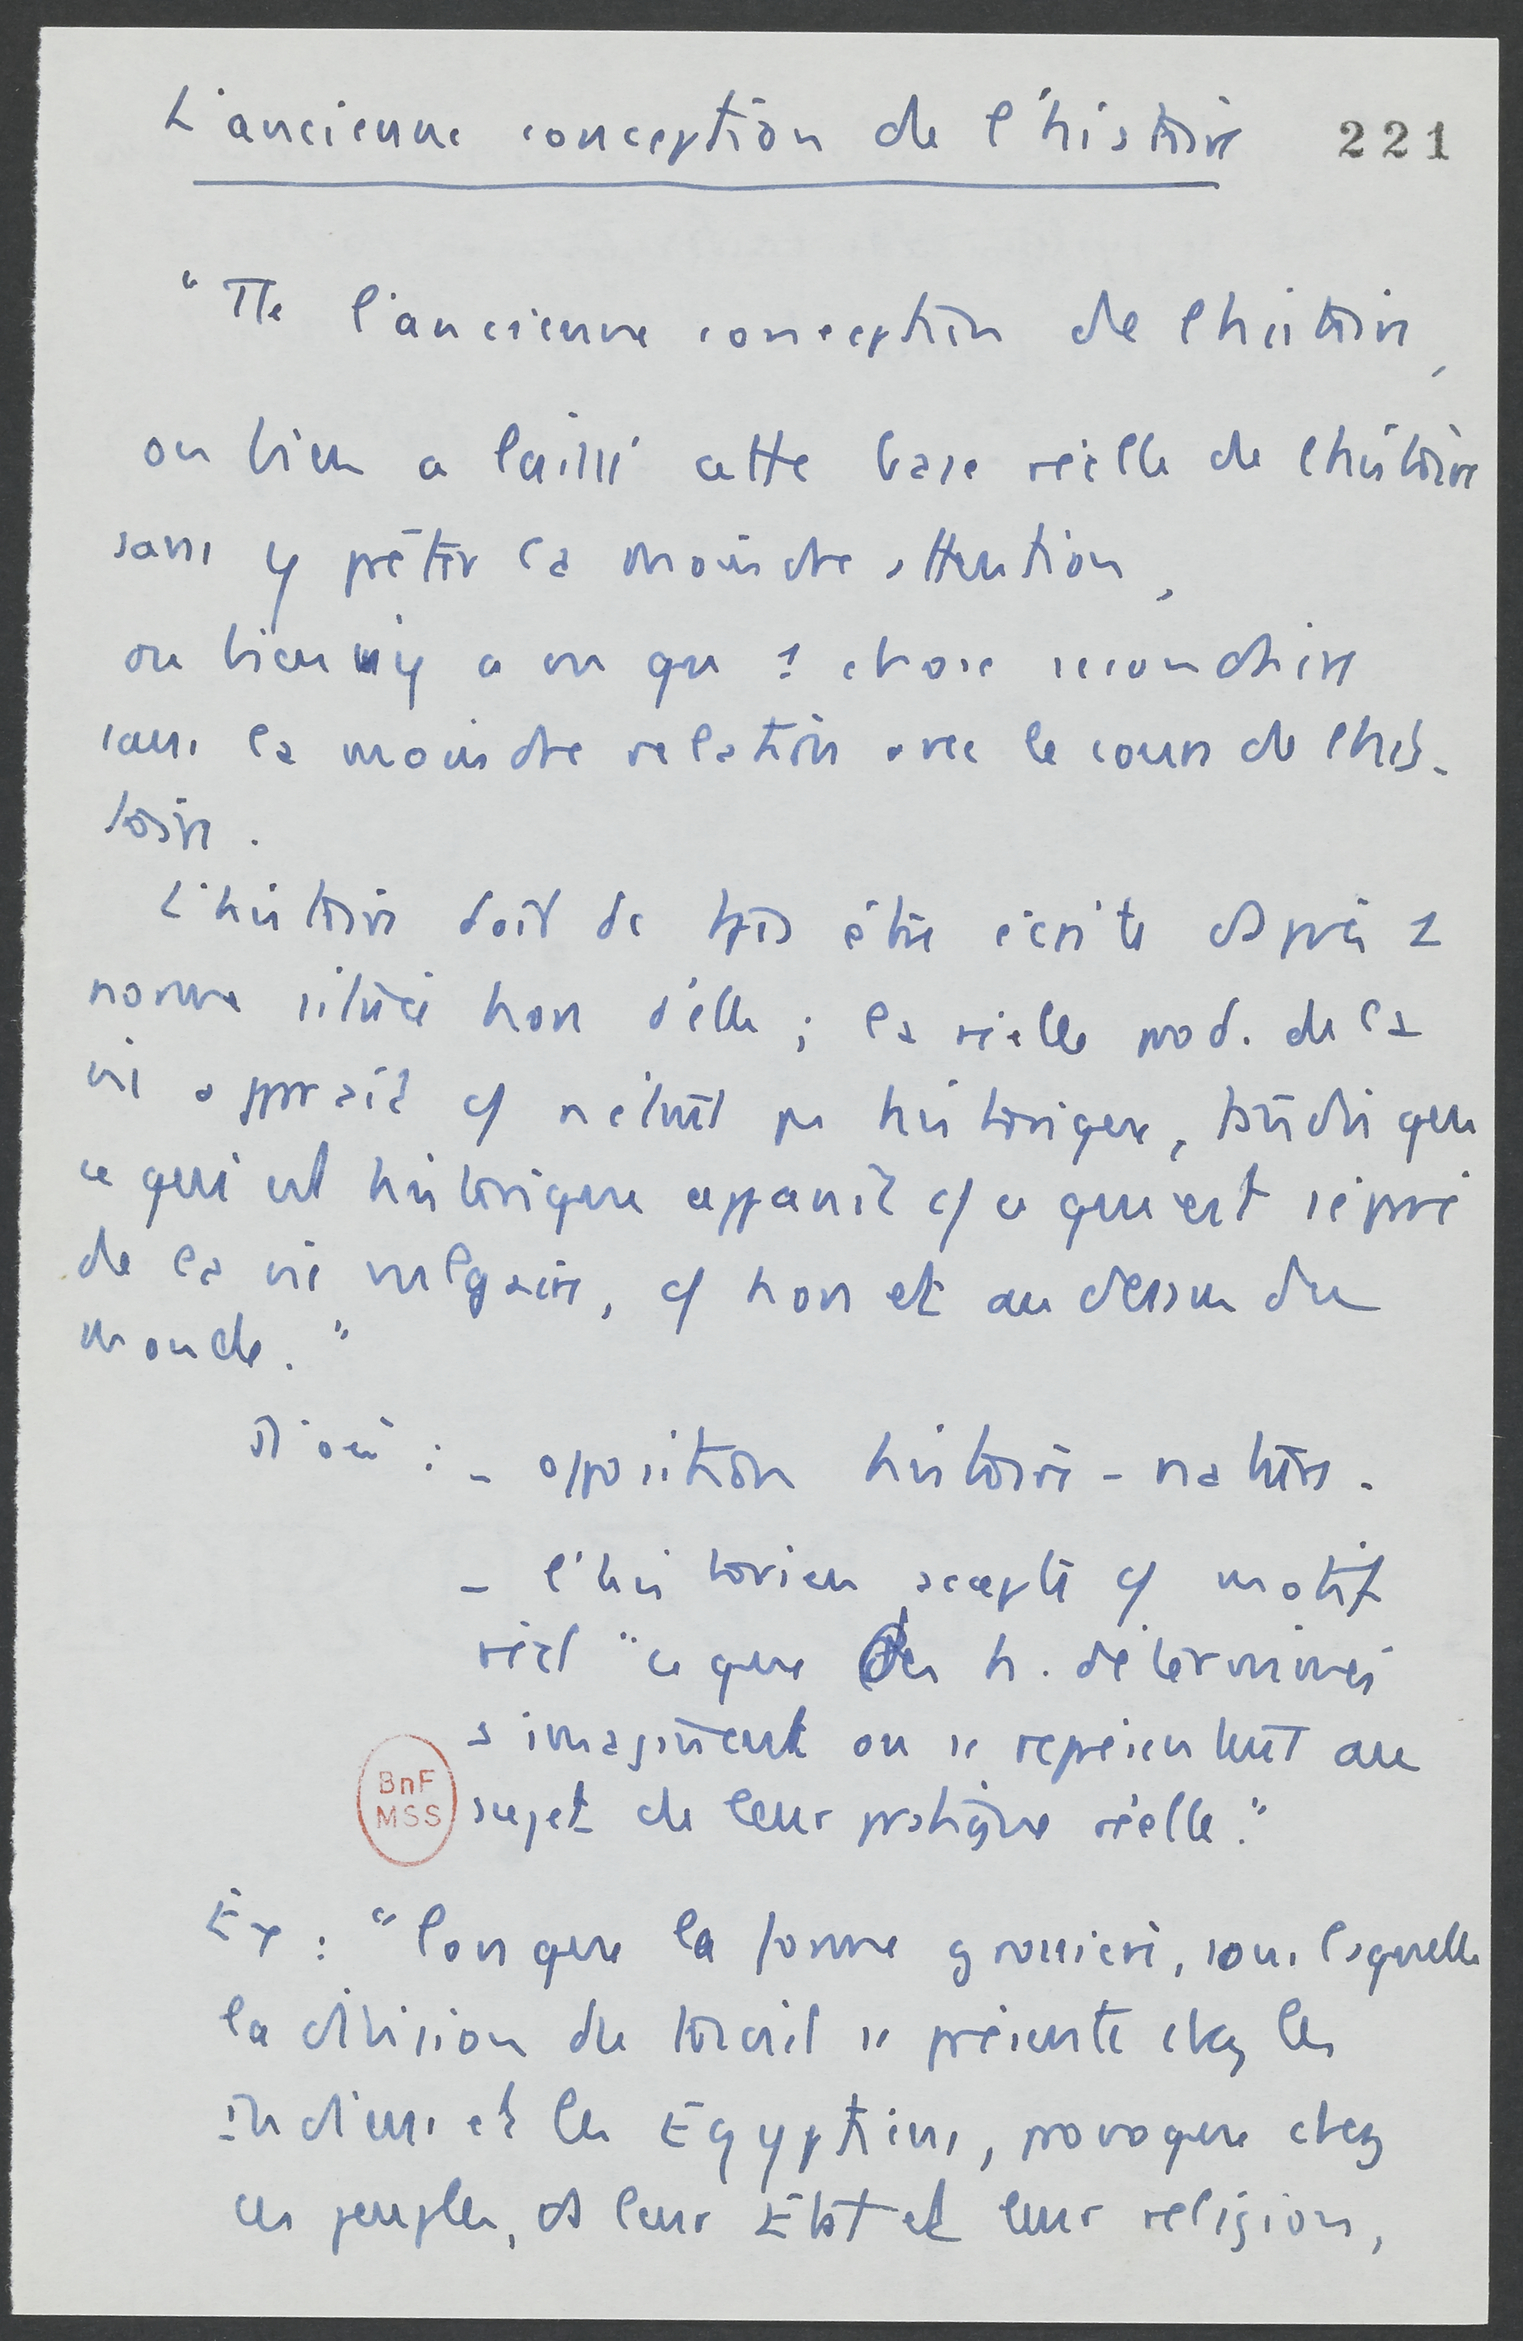 L'ancienne conception de l'histoire 221
"Tte l'ancienne conception de l'histoire,
ou bien a laissé cette base réelle de l'histoire
sans y prêter la moindre attention,
ou bien n'y a vu qu 1 chose secondaire
sans la moindre relation avec le cours de l'his-
toire.
L'histoire doit dc tjs être écrite d'après 1
norme située hors d'elle ; la réelle prod. de la
vie apparaît c/ n'étant pas historique, tandis que
ce qui est historique apparaît c/ ce qui est séparé
de la vie vulgaire, c/ hors et au dessus du
monde."
D'où : - opposition histoire - nature.
- l'historien accepte c/ motif
réel "ce que des h. déterminés
s'imaginent ou se représentent au
sujet de leur pratique réelle."
BnF
MSS
Ex : "lorsque la forme grossière, sous laquelle
la division du travail se présente chez les
Indiens et les Egyptiens, provoque chez
ces peuples, ds leur Etat et leur religion,